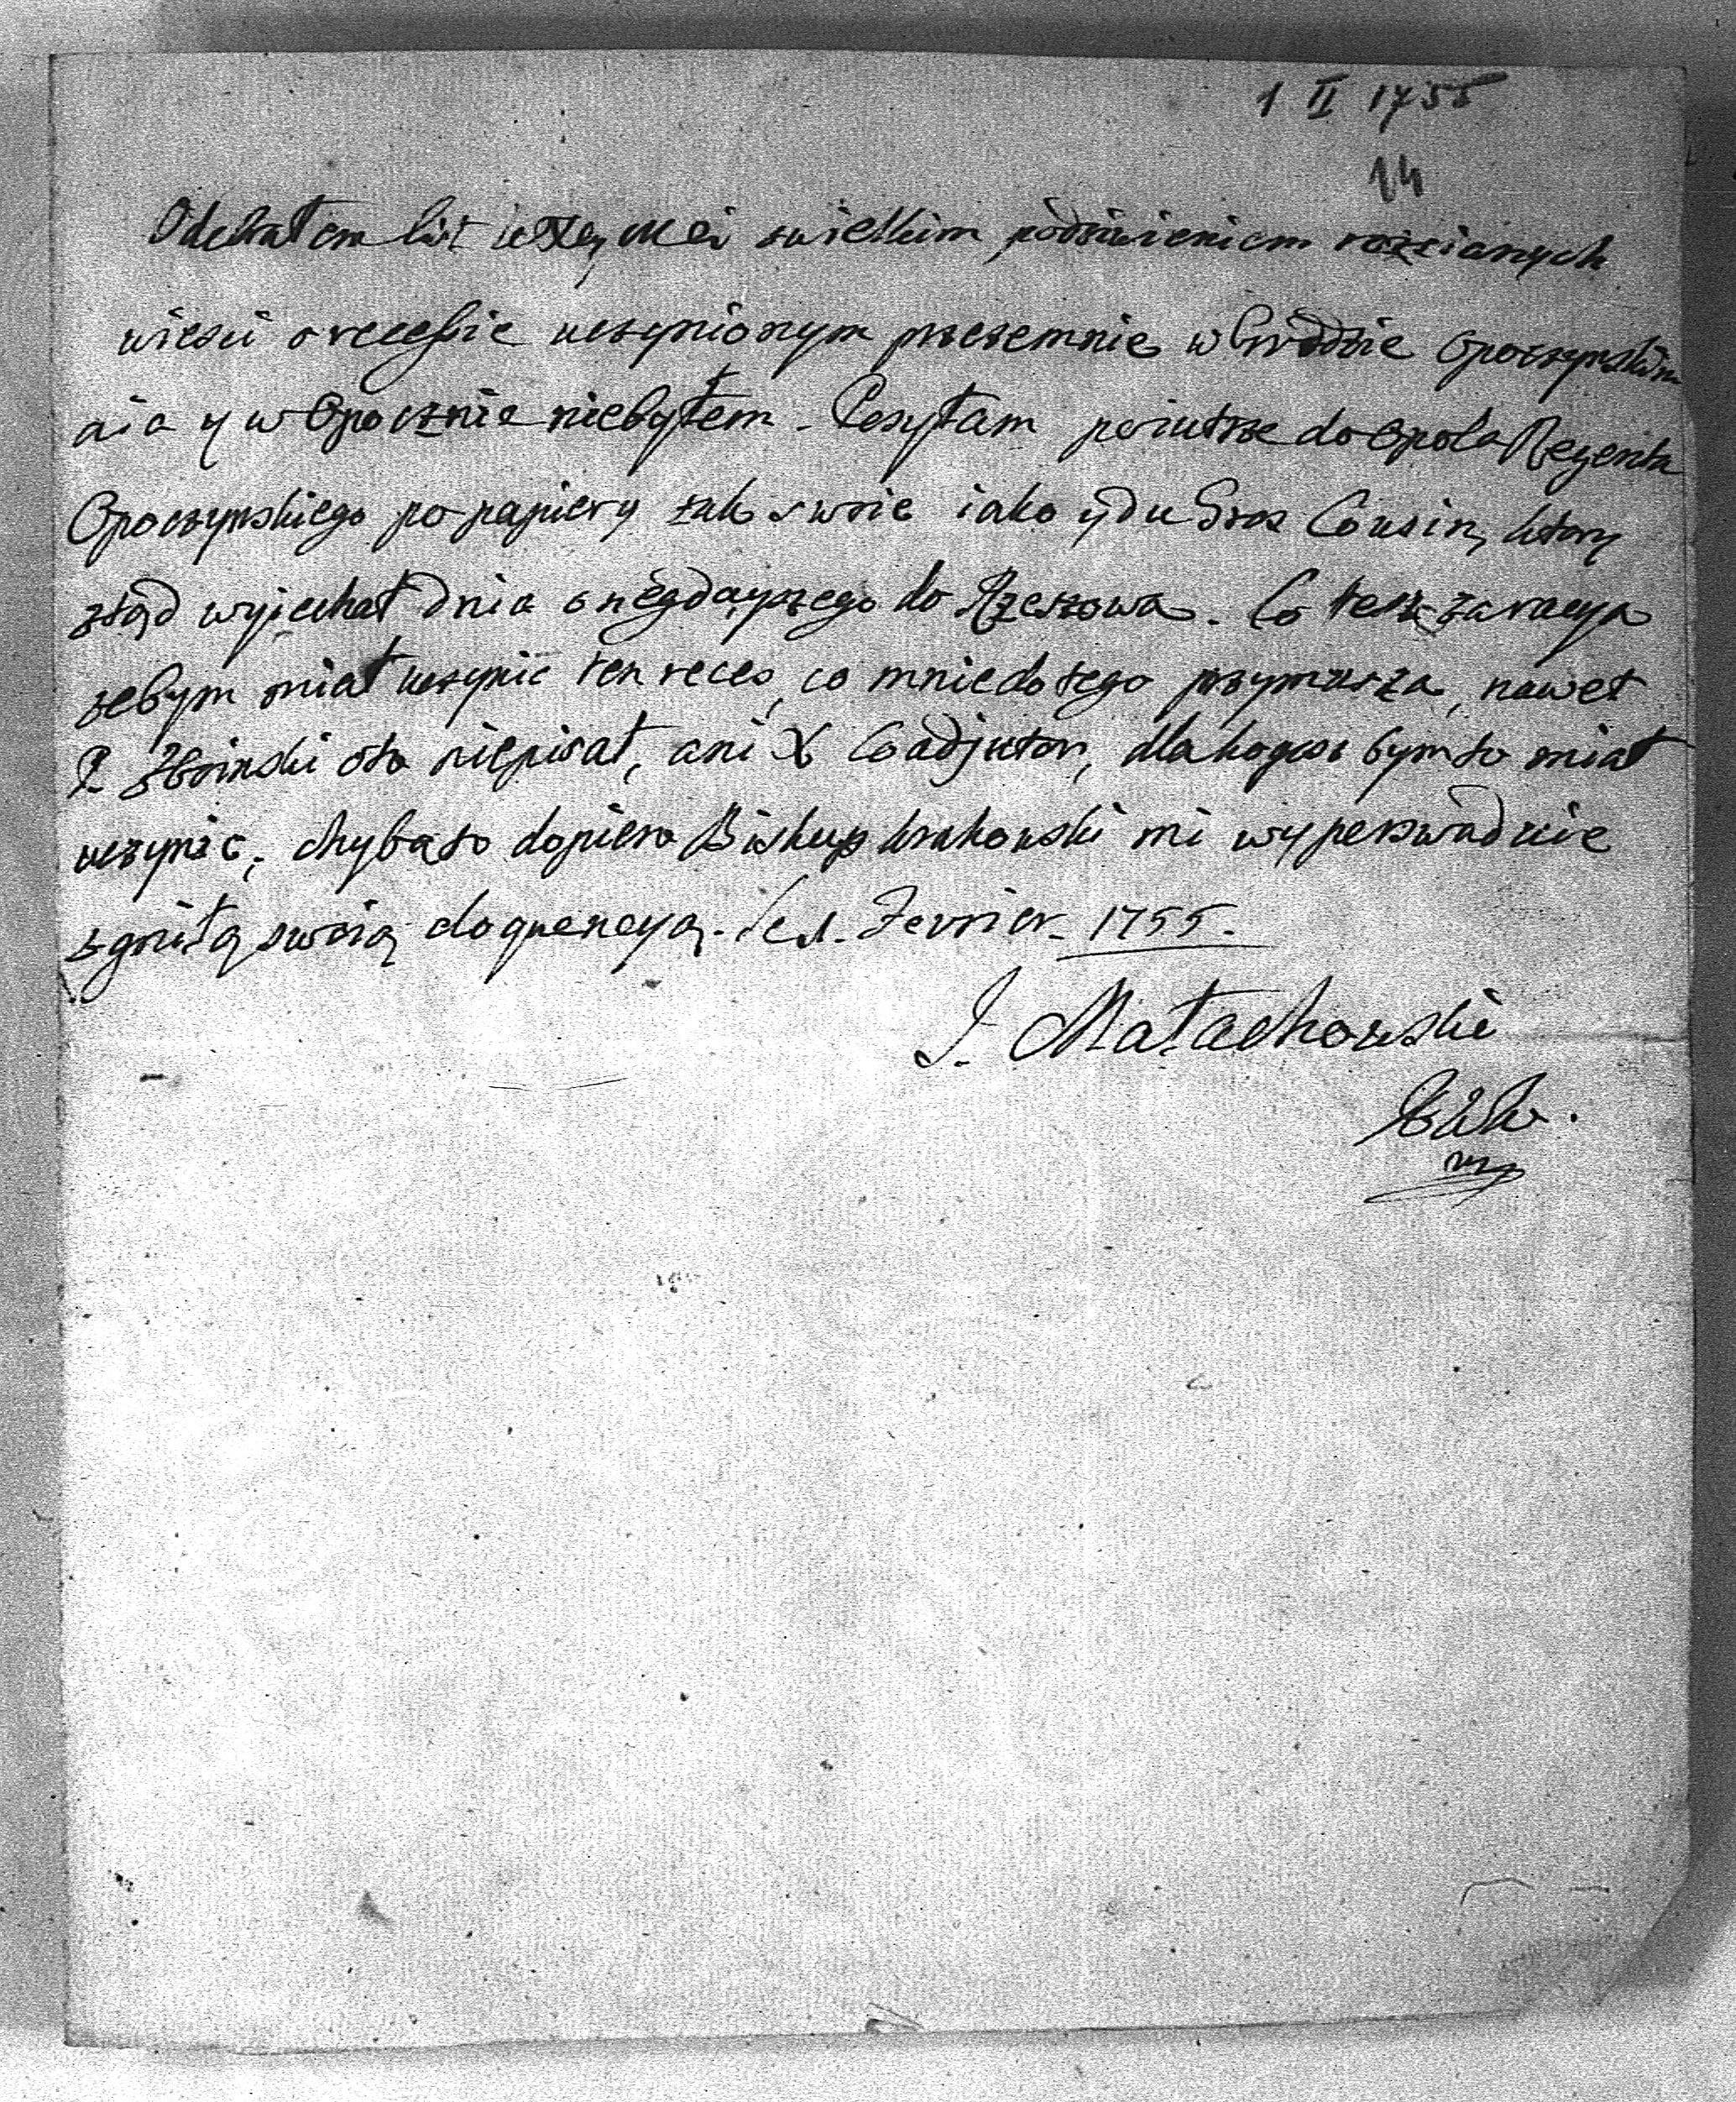 1 II 1755
14
Odebrałem list z wielkim podziwieniem rozsianych
wiesci o recessie uczynionym przezemnie w Grodzie Opoczynskim
a ia y w Opocznie niebyłem. Posyłam poiutrze do Opola Regenta
Opoczynskiego po papiery tak swoie iako y du Gros Cousin, ktory
ztąd wyjechał dnia onegdayszego do Rzeszowa. Co tesz za racya
zebym miał uczynic ten reces, co mnie do tego przymusza, nawet
P. Zboinski oto niepisał, ani X Coadjutor, dla kogosz bym to miał
uczynic, chyba to dopiero Biskup krakowski mi wyperswaduie
zgniłą swoią eloquencyą. le 1. Fevrier. 1755.
J. Małachowski
KWK.
mp